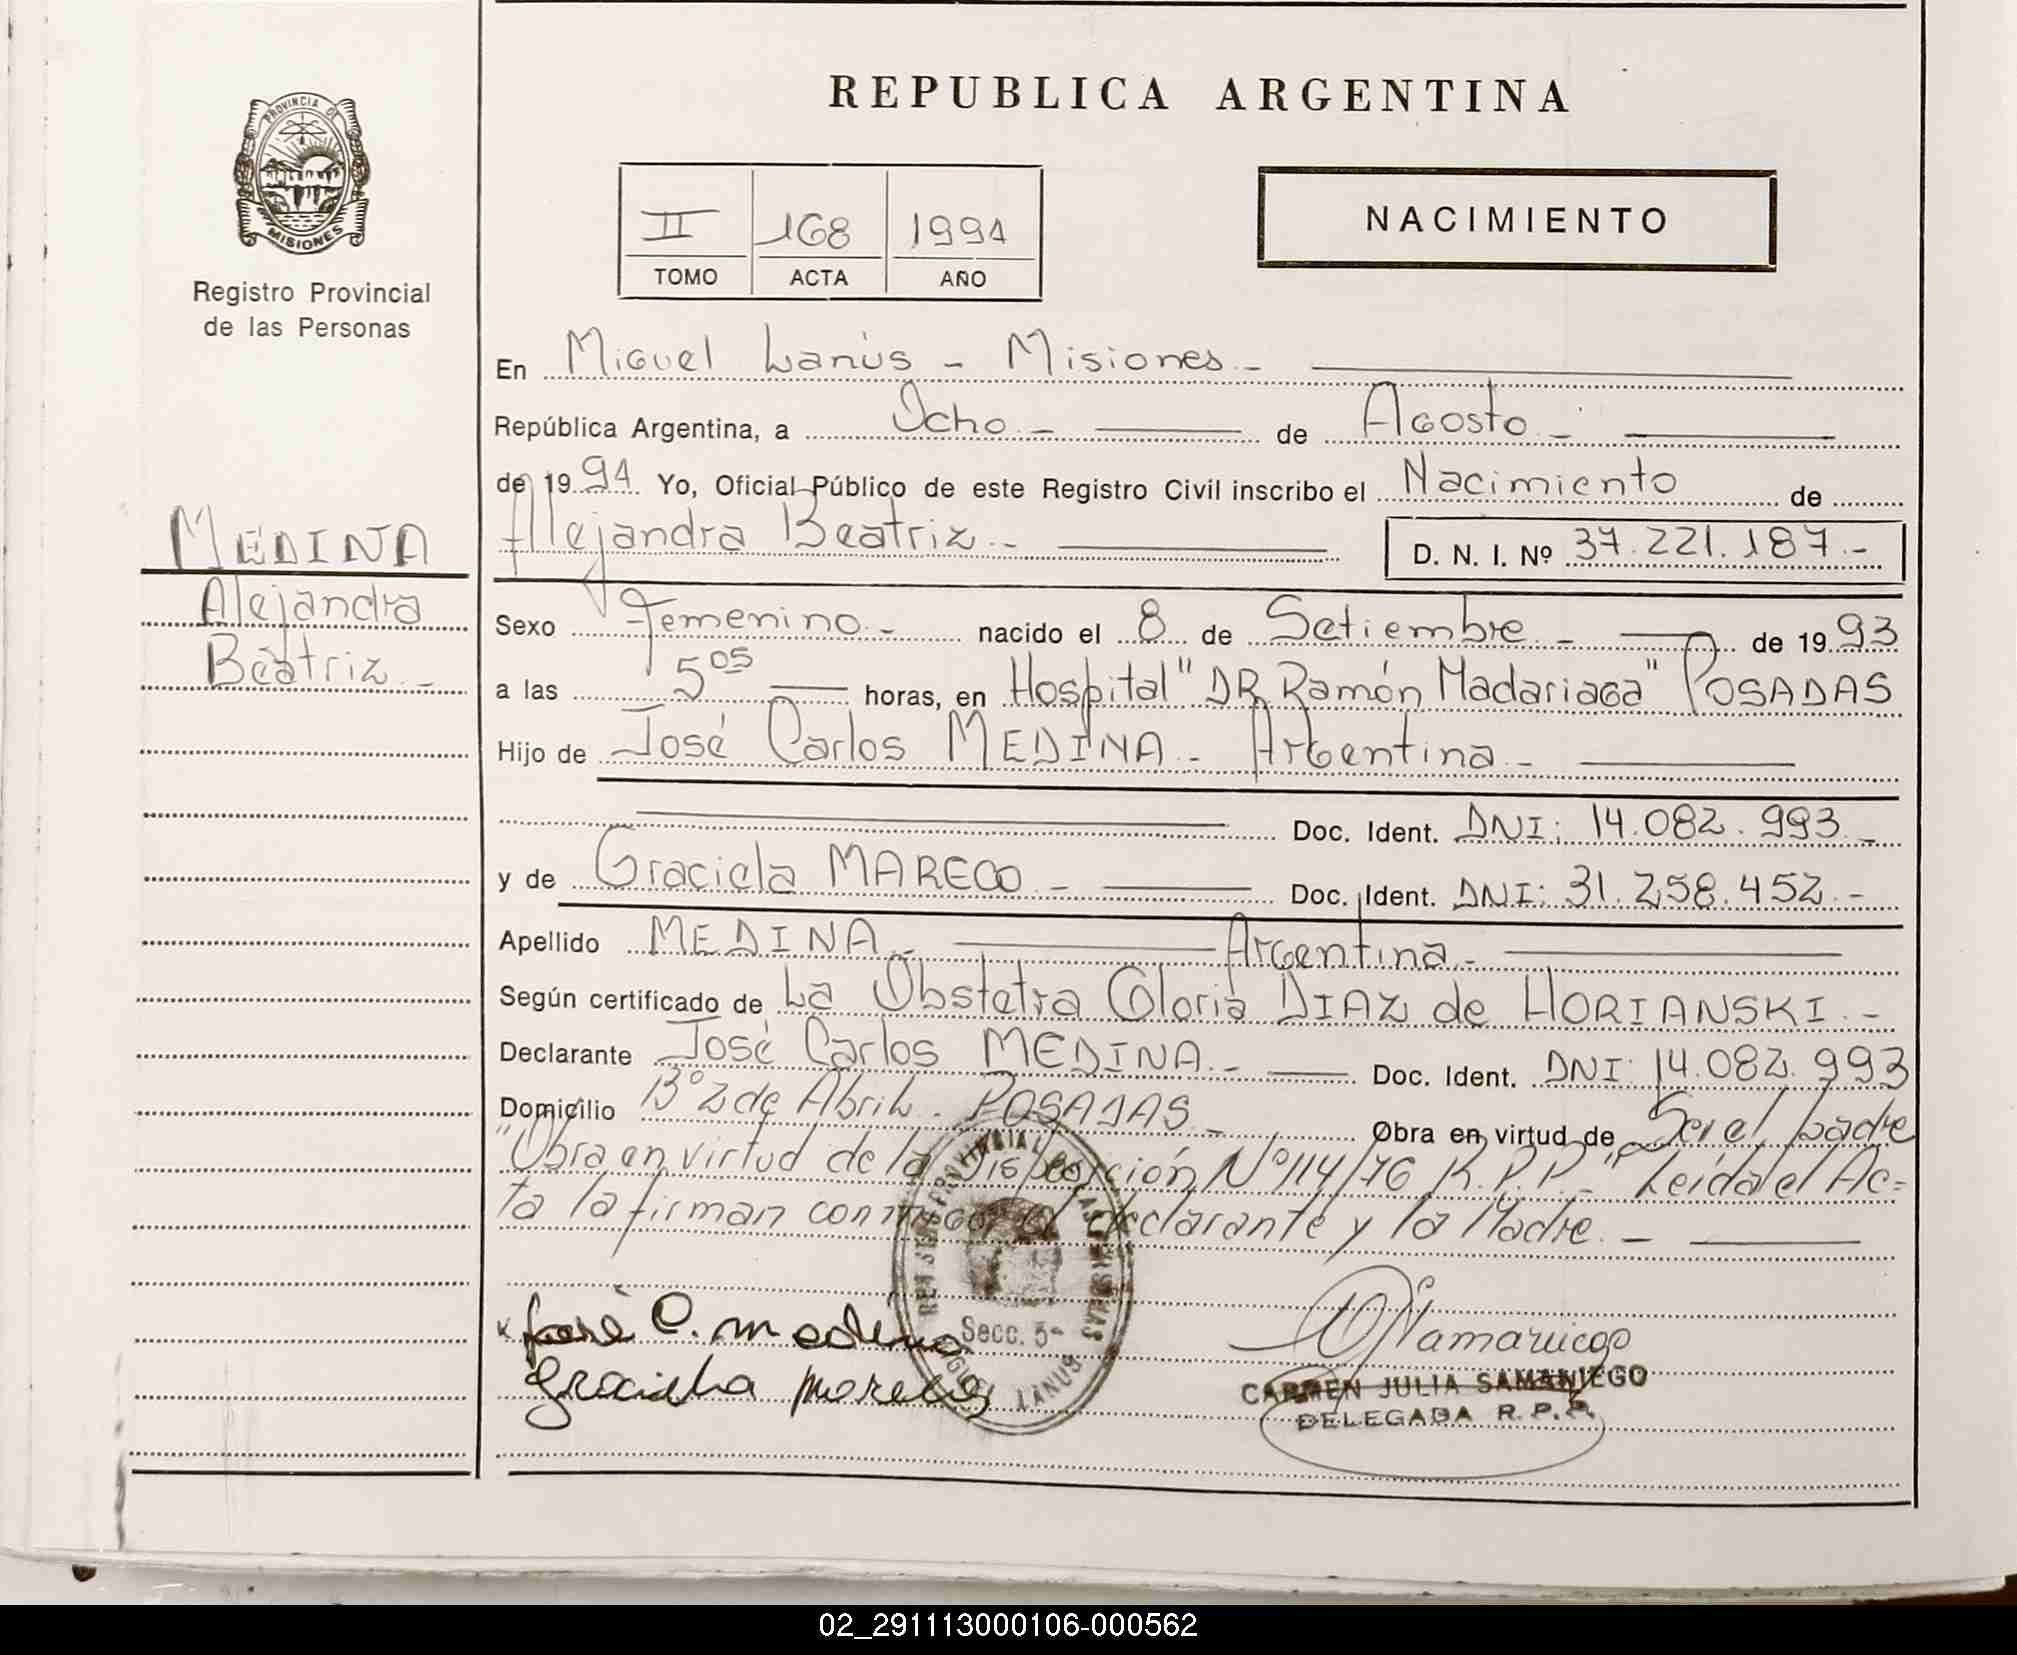 REPUBLICA ARGENTINA
PROVINCIA DE
MISIONES
Registro Provincial
de las Personas
II 168 1994
TOMO ACTA AÑO
NACIMIENTO
En Miguel Lanús - Misiones -
República Argentina, a Ocho - de Agosto -
de 1994 Yo, Oficial Público de este Registro Civil inscribo el Nacimiento de
Alejandra Beatriz - D. N. I. Nº 37.221.187.-
MEDINA
Alejandra
Beatriz -
Sexo Femenino - nacido el 8 de Setiembre - de 1993
a las 5 05 horas, en Hospital "DR Ramón Madariaga" POSADAS
Hijo de José Carlos MEDINA - Argentina -
Doc. Ident. DNI: 14.082.993 -
y de Graciela MARECO - Doc. Ident. DNI: 31.258.452.-
Apellido MEDINA - Argentina -
Según certificado de La Obstetra Gloria DIAZ de HORIANSKI.-
Declarante José Carlos MEDINA - Doc. Ident. DNI: 14.082.993
Domicilio Bº 2 de Abril. POSADAS - Obra en virtud de Ser el padre
"Obra en virtud de la Disposición Nº 114/76 R.P.P.-" Leída el Ac=
ta la firman conmigo el declarante y la Madre. -
José C. medina
Graciela mareco
Secc. 5ª
LANUS
Samaniego
CARMEN JULIA SAMANIEGO
DELEGADA R. P. P.
02_291113000106-000562